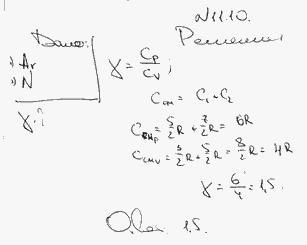 N11.10.
Дано:
1) Ar
2) N
γ - ?
Решение
γ = Cp/Cv ;
Cсм = C₁ + C₂
Cсмp = 5/2 R + 7/2 R = 6R
Cсмv = 3/2 R + 5/2 R = 8/2 R = 4R
γ = 6/4 = 1,5.
Ответ: 1,5.